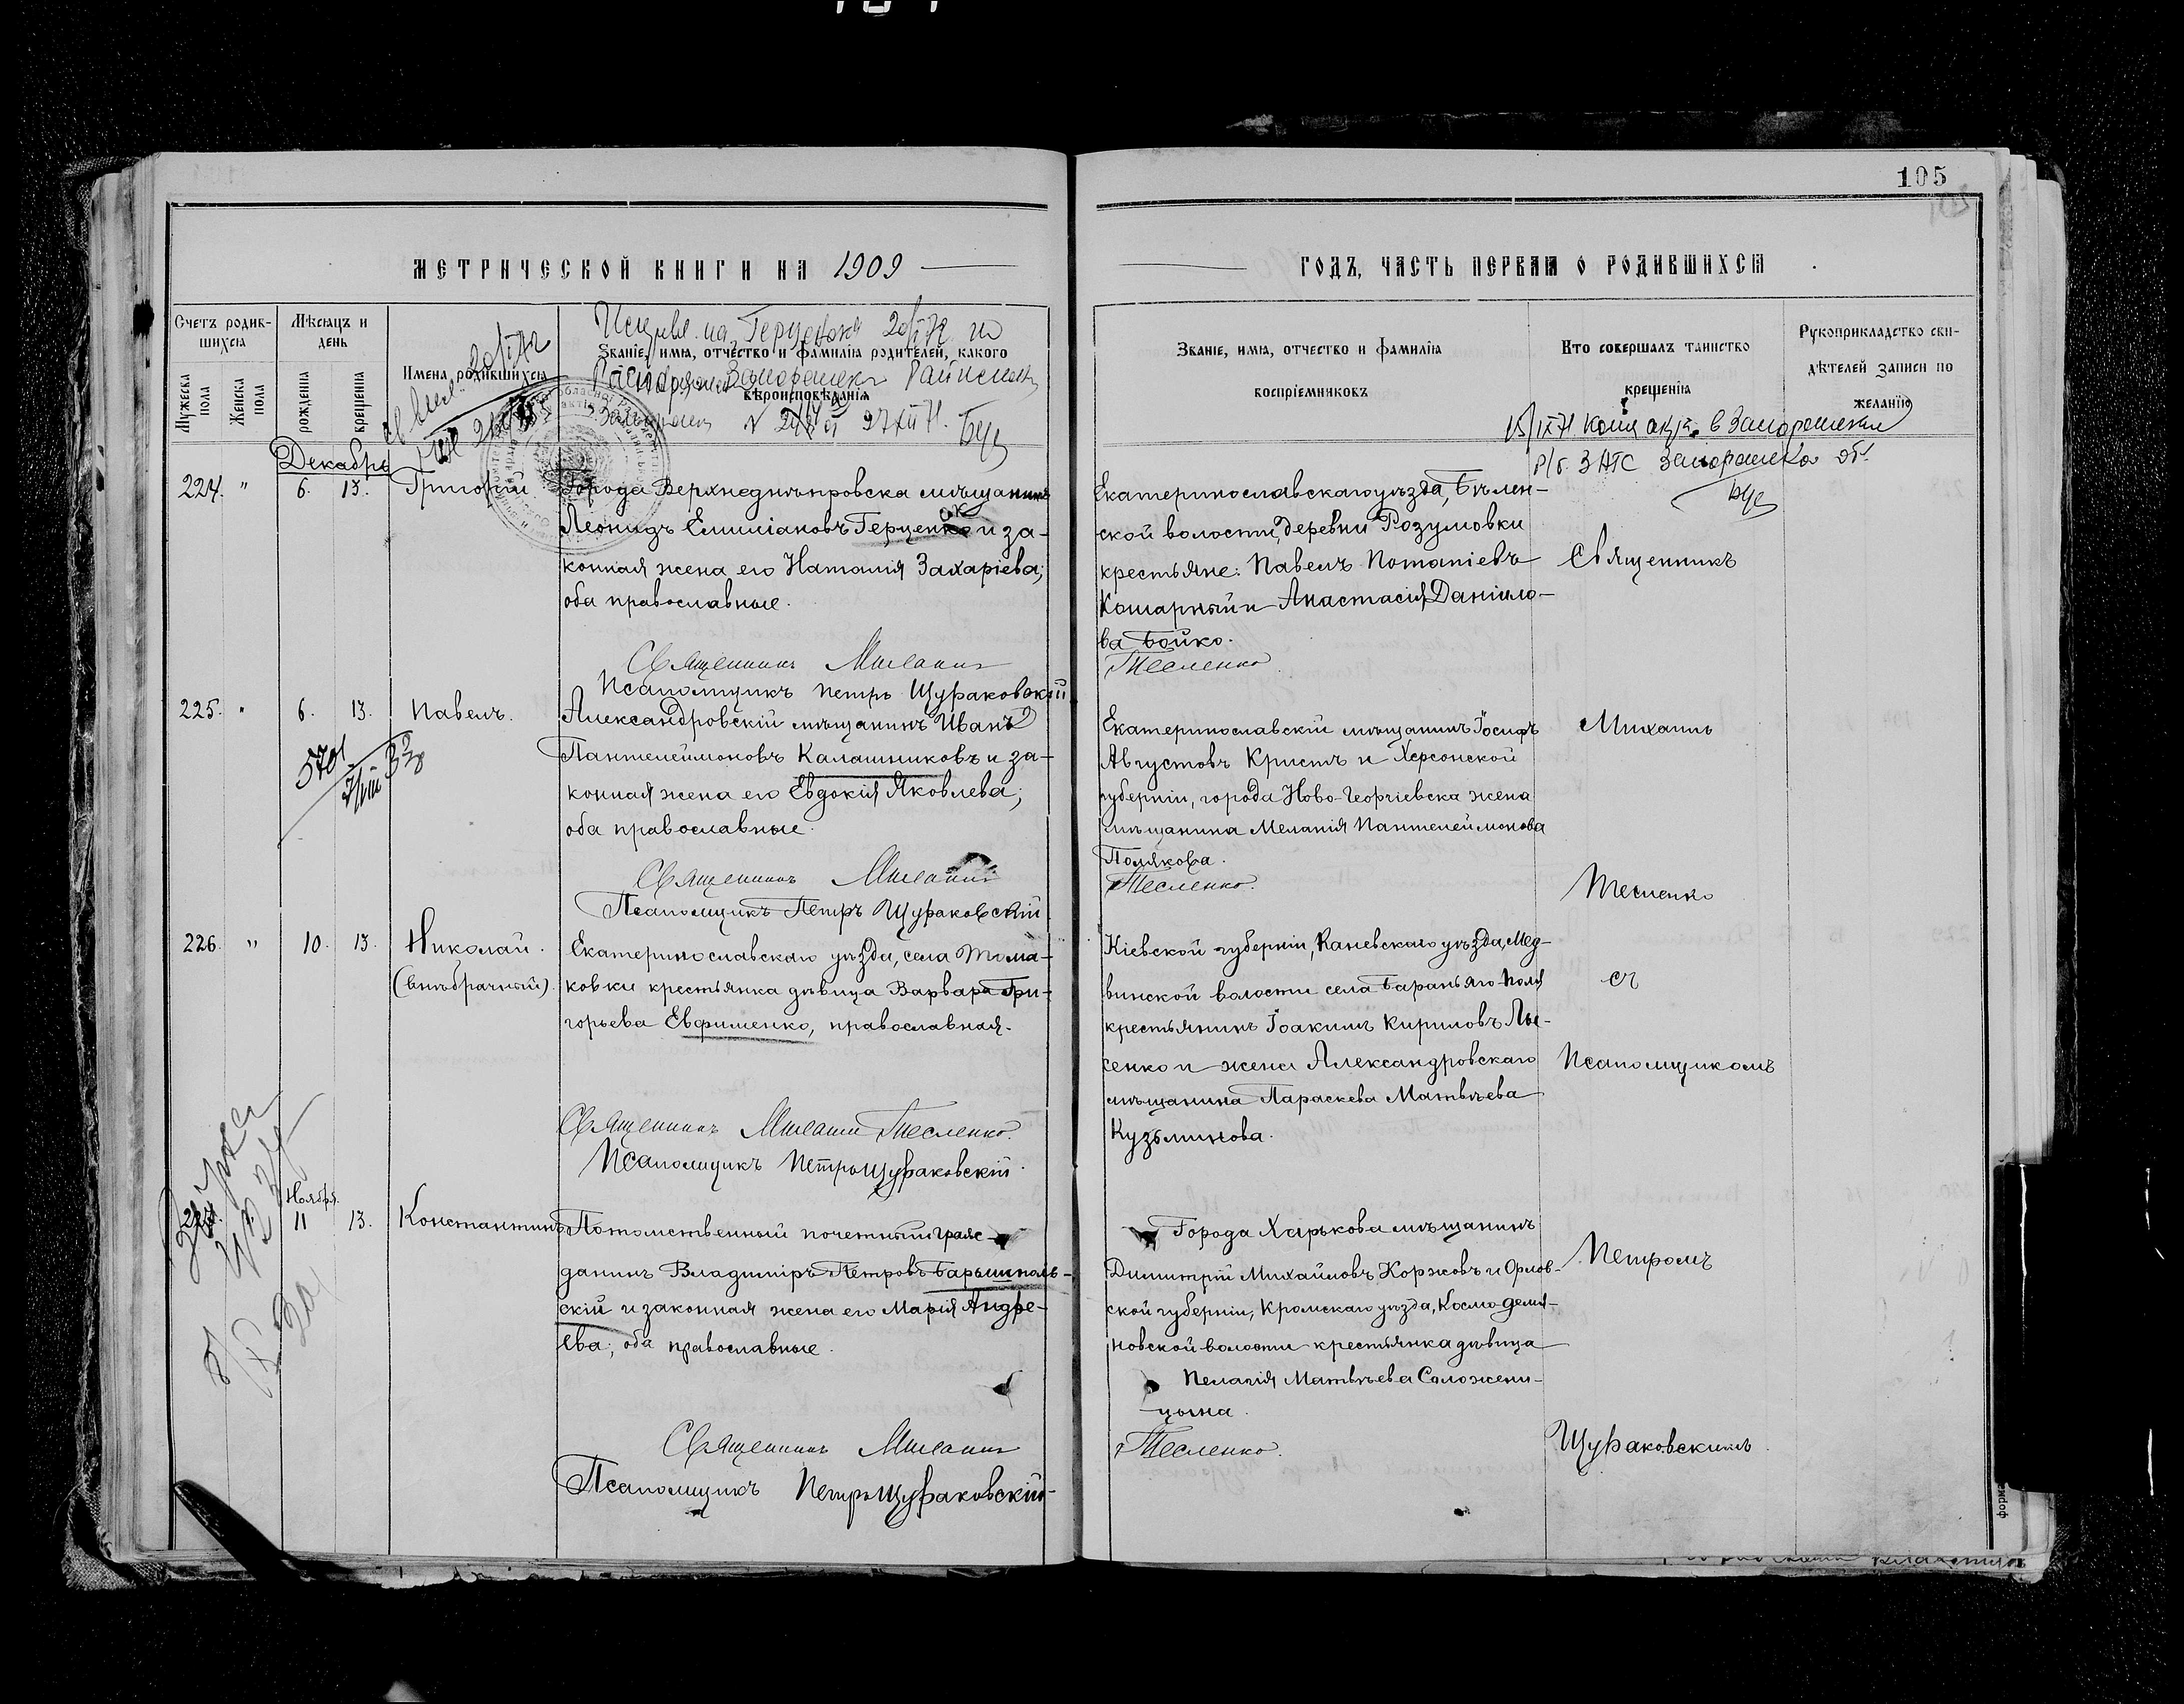 105
МЕТРИЧЕСКОЙ КНИГИ НА 1909
ГОДЪ, ЧАСТЬ ПЕРВАЯ О РОДИВШИХСЯ
Счетъ родив-
шихся
Мужеска пола
Женска пола
Мѣсяцъ и
день
рожденія
крещенія
Имена родившихся
Званіе, имя, отчество и фамилія родителей, какого
вѣроисповѣданія
Званіе, имя, отчество и фамилія
воспріемниковъ
Кто совершалъ таинство
крещенія
Рукоприкладство сви-
дѣтелей записи по
желанію
Герценок 20/I 72
Запорожск
27/XII 71.
15/IX 71 копия в Запорожский
ЗАГС Запорожско обл.
Декабрь
224. " 6. 13. Григорій
Города Верхнеднѣпровска мѣщанинъ
Леонидъ Емиліановъ Герценко и за-
конная жена его Наталія Захаріева;
оба православные.
Священникъ
Псаломщикъ Петръ Щураковскій
Екатеринославскаго уѣзда, Бѣлен-
ской волости, деревни Розумовки
крестьяне: Павелъ Потапіевъ
Кошарный и Анастасія Даніило-
ва Бойко.
Тесленко
Священникъ
225. " 6. 13. Павелъ.
Александровскій мѣщанинъ Иванъ
Пантелеймоновъ Калашниковъ и за-
конная жена его Евдокія Яковлева;
оба православные.
Священникъ
Псаломщикъ Петръ Щураковскій
5701
Екатеринославскій мѣщанинъ Іосифъ
Августовъ Кристъ и Херсонской
губерніи, города Ново-Георгіевска жена
мѣщанина Меланія Пантелеймонова
Полякова.
Тесленко.
Михаилъ
Тесленко
226. " 10. 13. Николай.
(внѣбрачный).
Екатеринославскаго уѣзда, села Тома-
ковки крестьянка дѣвица Варвара Гри-
горьева Евфименко, православная.
Священникъ Михаилъ Тесленко.
Псаломщикъ Петръ Щураковскій.
Кіевской губерніи, Каневскаго уѣзда, Мед-
винской волости села Бараньяго-Поля
крестьянинъ Іоакимъ Кириловъ Лы-
сенко и жена Александровскаго
мѣщанина Параскева Матвѣева
Кузьминова.
съ
Псаломщикомъ
Ноября.
11 13. Константинъ
Потомственный почетный граж-
данинъ Владиміръ Петровъ Барышполь-
скій и законная жена его Марія Андре-
ева; оба православные.
Священникъ
Псаломщикъ Петръ Щураковскій
Города Харькова мѣщанинъ
Димитрій Михайловъ Коржовъ и Орлов-
ской губерніи, Кромскаго уѣзда, Космо-демья-
новской волости крестьянка дѣвица
Пелагія Матвѣева Соложени-
цына.
Тесленко.
Петромъ
Щураковскимъ.